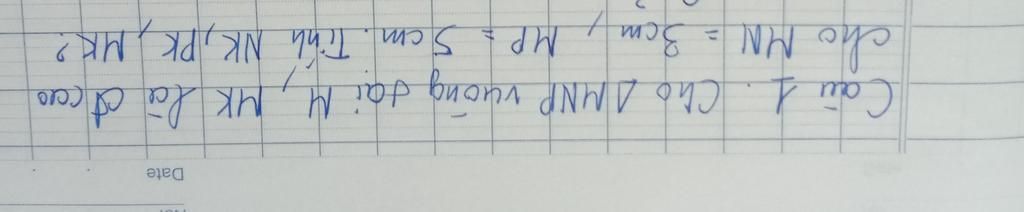 Date
Câu 1. Cho ΔMNP vuông tại M, MK là đ cao
cho MN = 3cm, MP = 5cm. Tính NK, PK, MK?